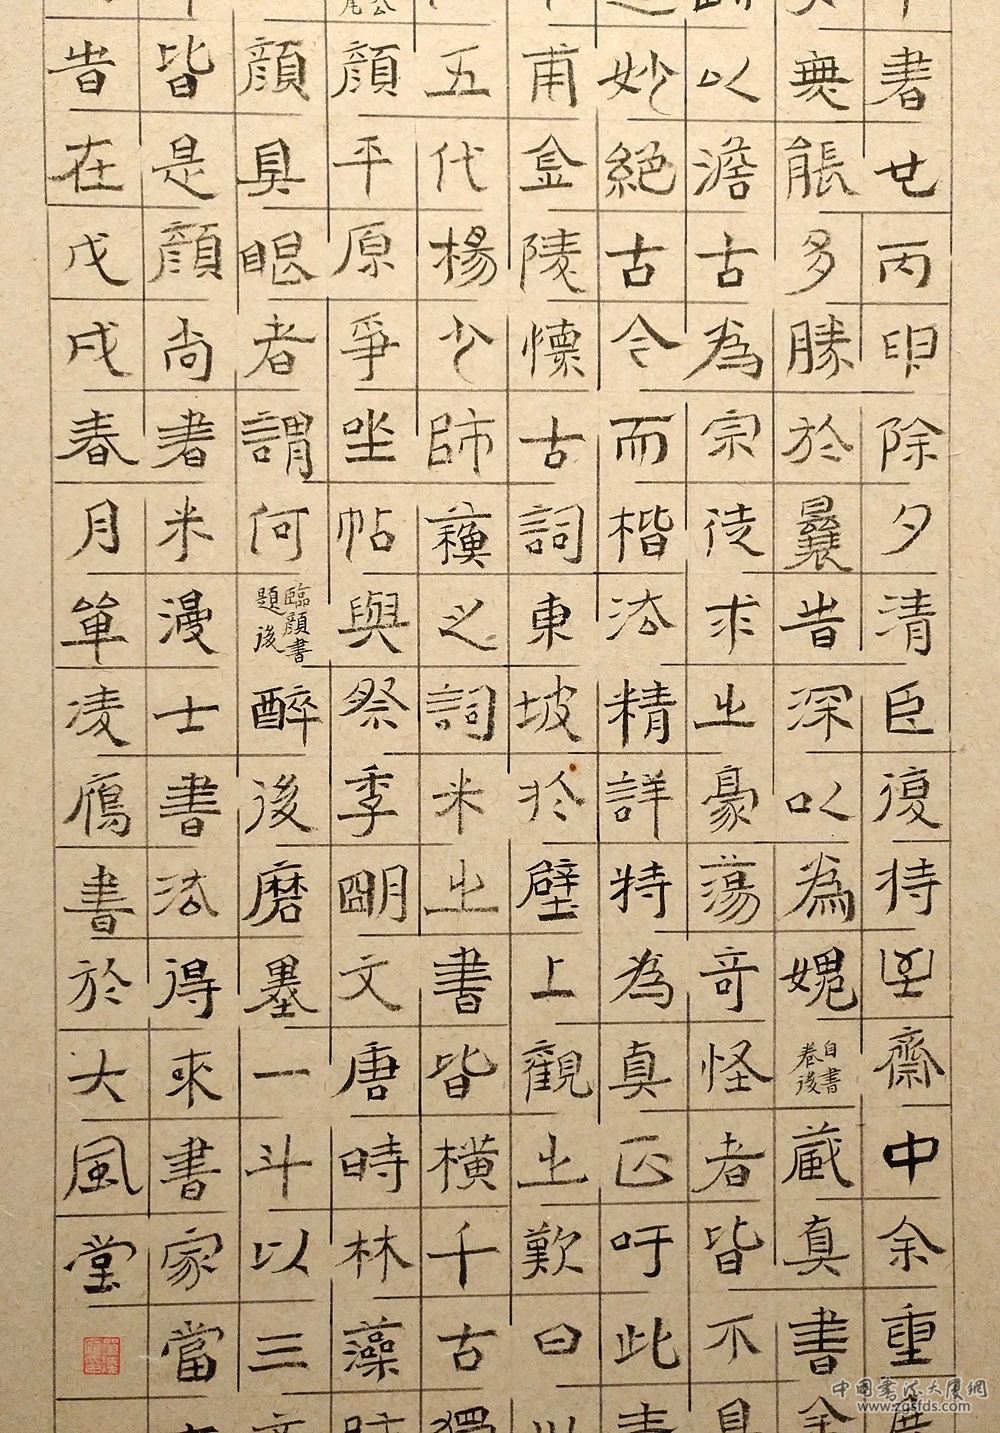 書廿丙卯除夕清臣復持至齋中余重
無能多勝於曩昔深以為媿自書卷後蔵真書
以澹古為宗徒求之豪蕩奇怪者皆不
妙絕古今而楷法精詳特為真正吁此
甫金陵懷古詞東坡於壁上觀之歎曰
五代楊少師蘋之詞米之書皆橫千古
顏平原爭坐帖與祭季明文唐時林藻
顏具眼者謂何臨顏書題後醉後磨墨一斗以三
皆是顏尚書米漫士書法得來書家當
昔在戊戌春月單凌鴈書於大風堂
中国书法大厦网
www.zgsfds.com